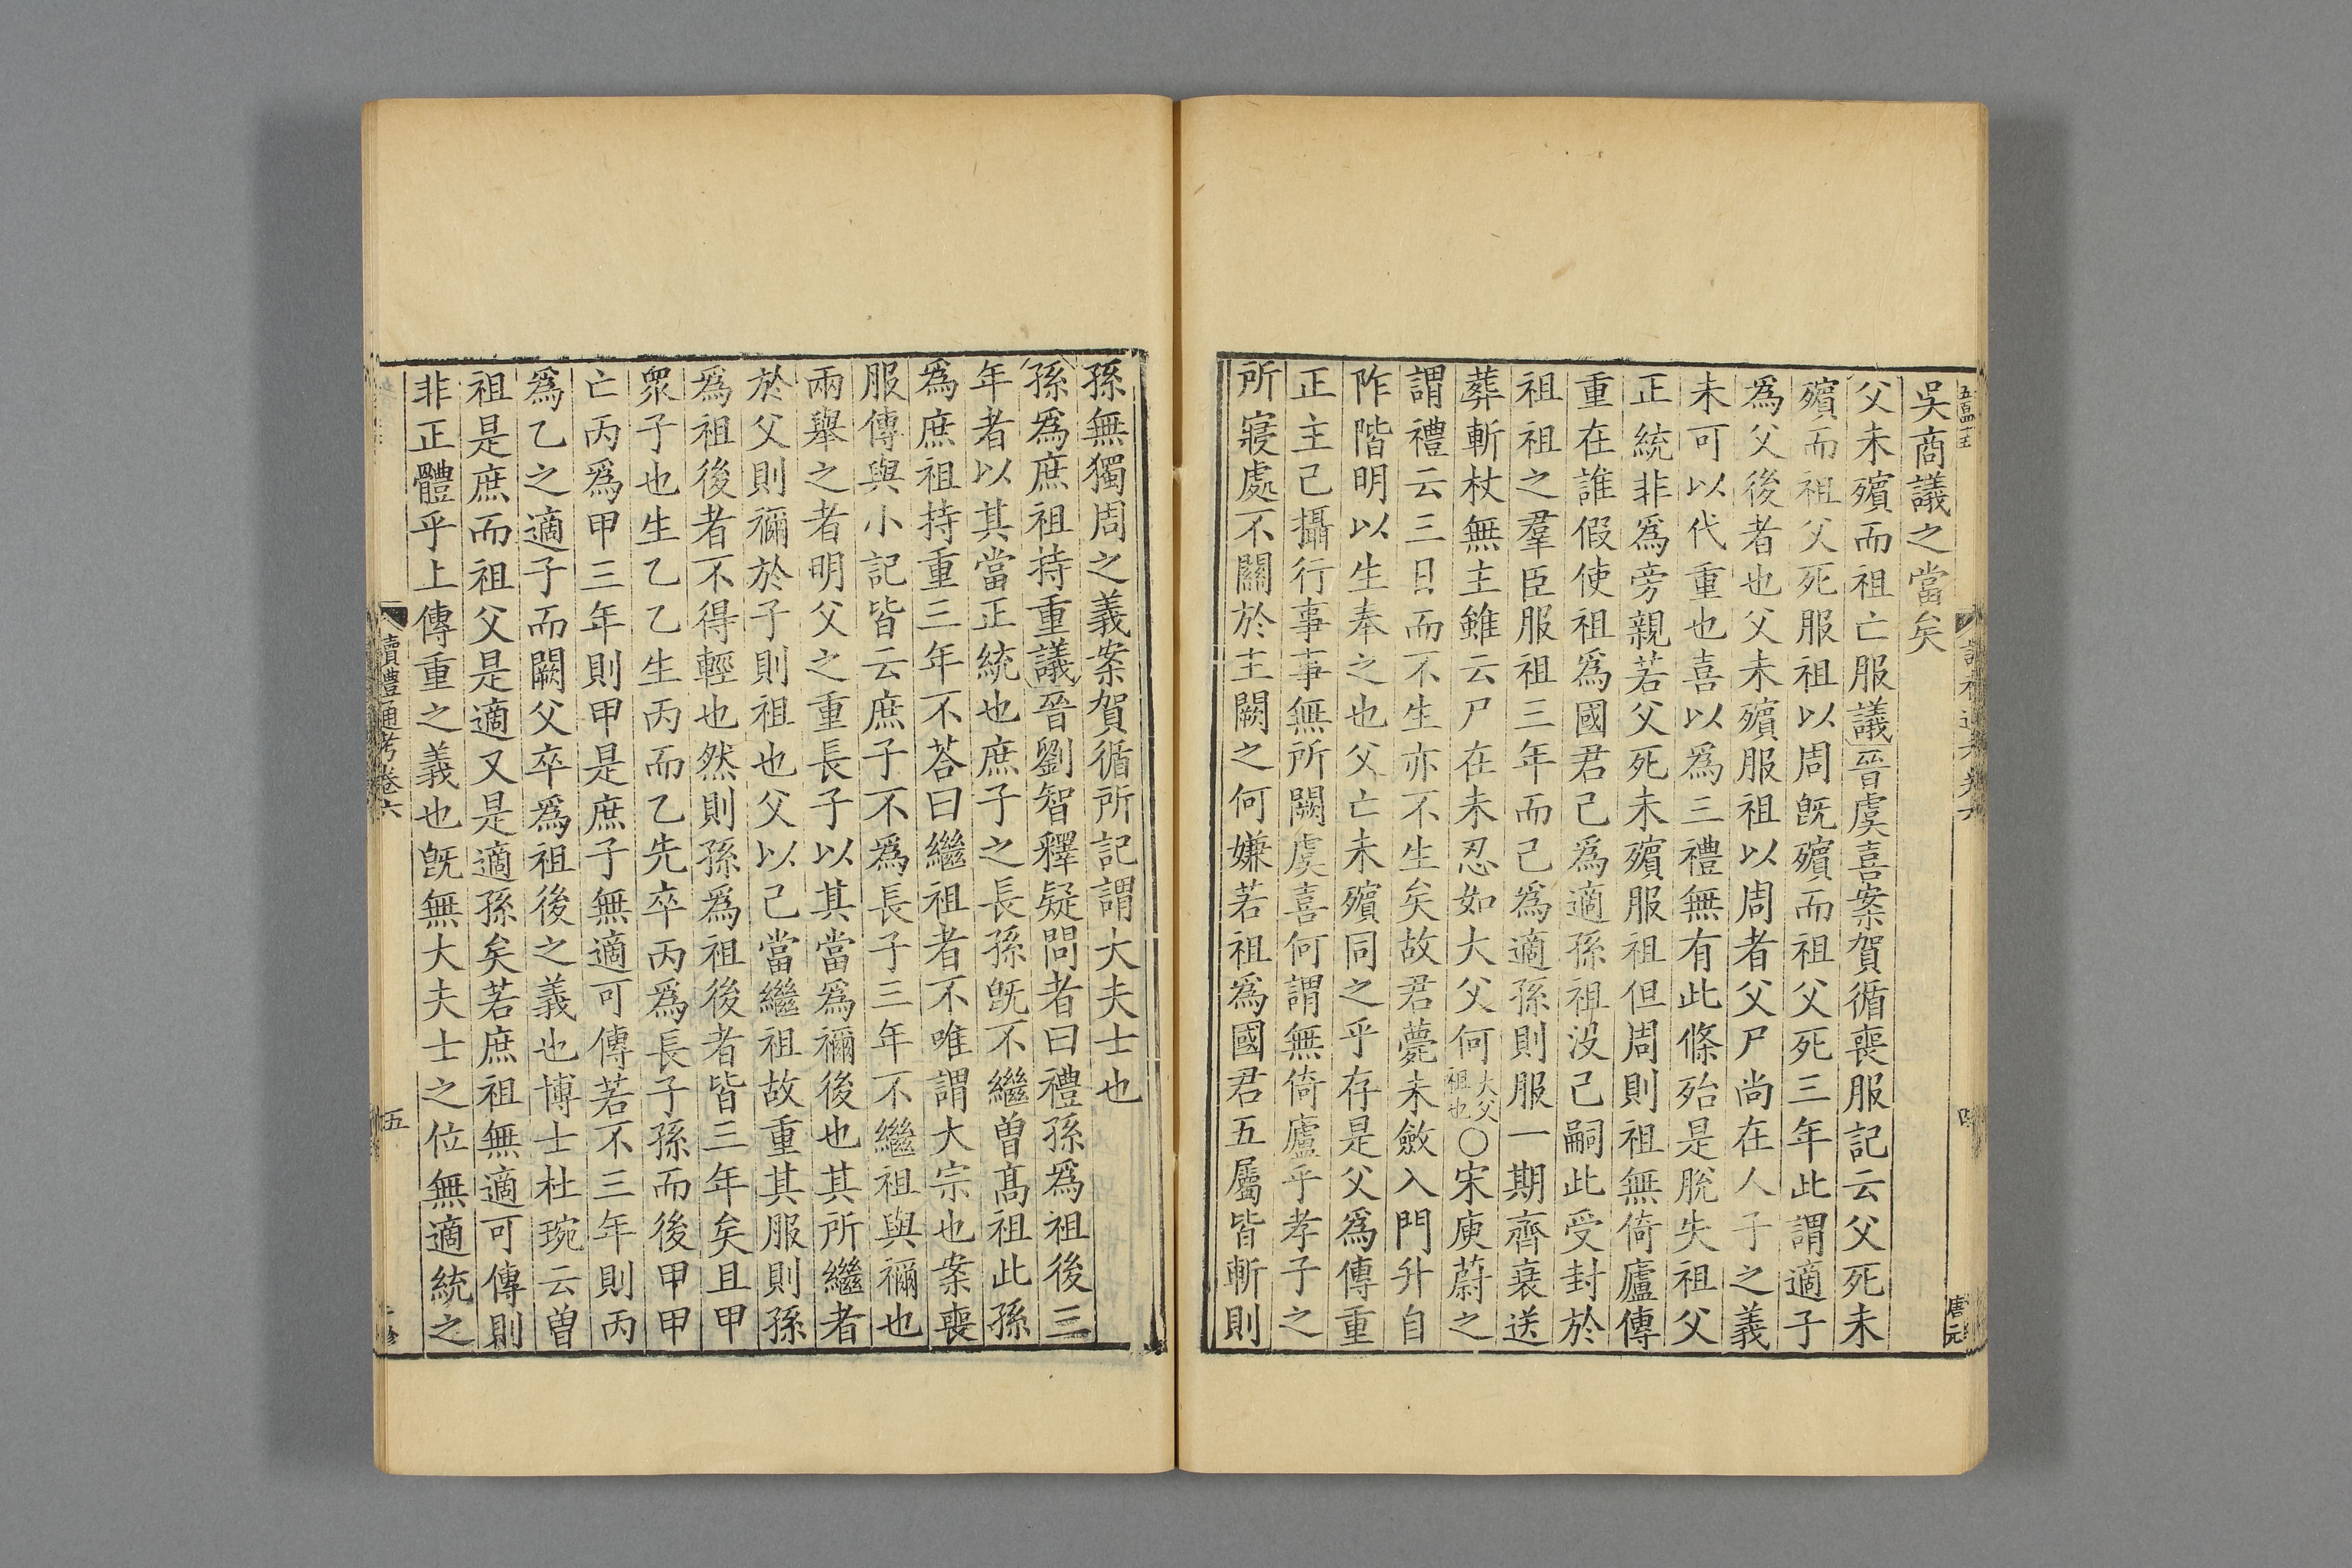 吳商議之當矣
父未殯而祖亡服議晉虞喜案賀循喪服記云父死未
殯而祖父死服祖以周旣殯而祖父死三年此謂適子
爲父後者也父未殯服祖以周者父尸尚在人子之義
未可以代重也喜以爲三禮無有此條殆是脫失祖父
正統非爲旁親若父死未殯服祖但周則祖無倚廬傳
重在誰假使祖爲國君己爲適孫祖没己嗣此受封於
祖祖之羣臣服祖三年而己爲適孫則服一期齊衰送
葬斬杖無主雖云尸在未忍如大父何大父祖也〇宋庾蔚之
謂禮云三日而不生亦不生矣故君薨未斂入門升自
阼階明以生奉之也父亡未殯同之乎存是父爲傳重
正主己攝行事事無所闕虞喜何謂無倚廬乎孝子之
所寢處不關於主闕之何嫌若祖爲國君五屬皆斬則
孫無獨周之義案賀循所記謂大夫士也
孫爲庶祖持重議晉劉智釋疑問者曰禮孫爲祖後三
年者以其當正統也庶子之長孫旣不繼曾高祖此孫
爲庶祖持重三年不荅曰繼祖者不唯謂大宗也案喪
服傳與小記皆云庶子不爲長子三年不繼祖與禰也
兩舉之者明父之重長子以其當爲禰後也其所繼者
於父則禰於子則祖也父以己當繼祖故重其服則孫
爲祖後者不得輕也然則孫爲祖後者皆三年矣且甲
衆子也生乙乙生丙而乙先卒丙爲長子孫而後甲甲
亡丙爲甲三年則甲是庶子無適可傳若不三年則丙
爲乙之適子而闕父卒爲祖後之義也博士杜琬云曾
祖是庶而祖父是適又是適孫矣若庶祖無適可傳則
非正體乎上傳重之義也旣無大夫士之位無適統之
讀禮通考卷六
五
唐元